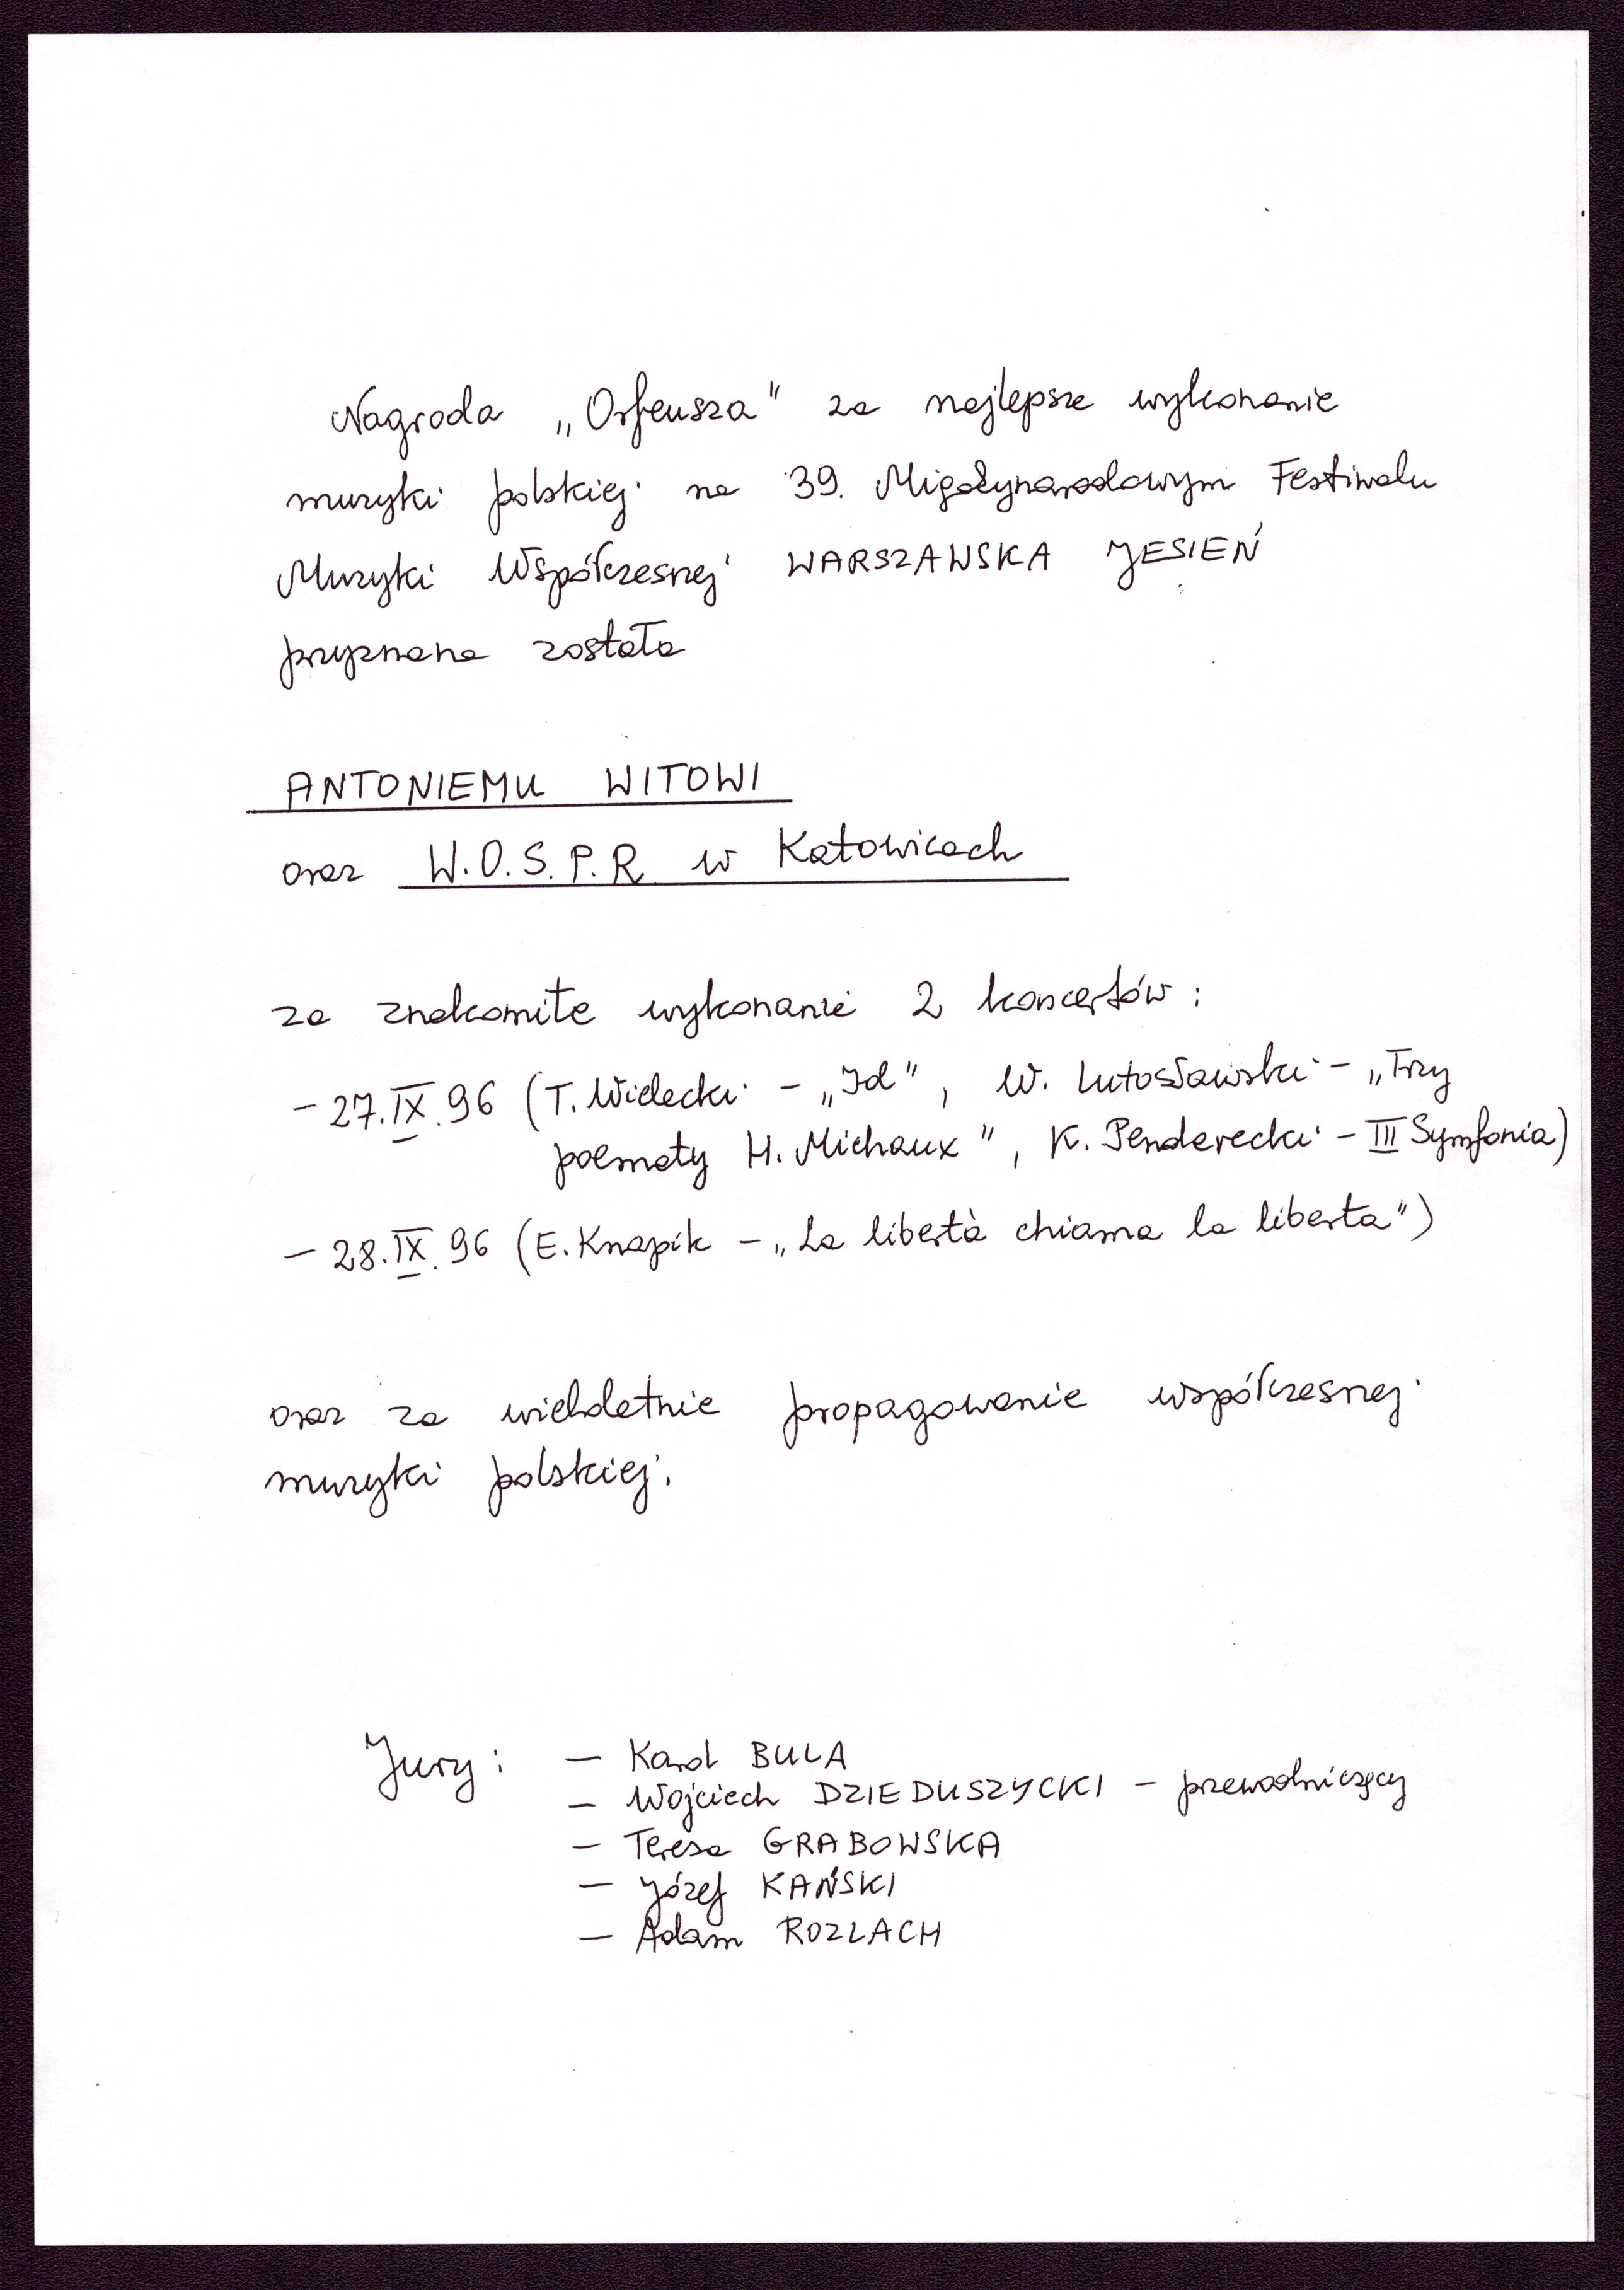 Nagroda „Orfeusza" za najlepsze wykonanie
muzyki polskiej na 39. Międzynarodowym Festiwalu
Muzyki Współczesnej WARSZAWSKA JESIEŃ
przyznana została
ANTONIEMU WITOWI
oraz W.O.S.P.R. w Katowicach
za znakomite wykonanie 2 koncertów:
- 27.IX.96 (T. Wielecki - „Id", W. Lutosławski - „Trzy
poematy H. Michaux", K. Penderecki - III Symfonia)
- 28.IX.96 (E. Knapik - „La libertà chiama la liberta")
oraz za wieloletnie propagowanie współczesnej
muzyki polskiej.
Jury: - Karol BULA
- Wojciech DZIEDUSZYCKI - przewodniczący
- Teresa GRABOWSKA
- Józef KAŃSKI
- Adam ROZLACH